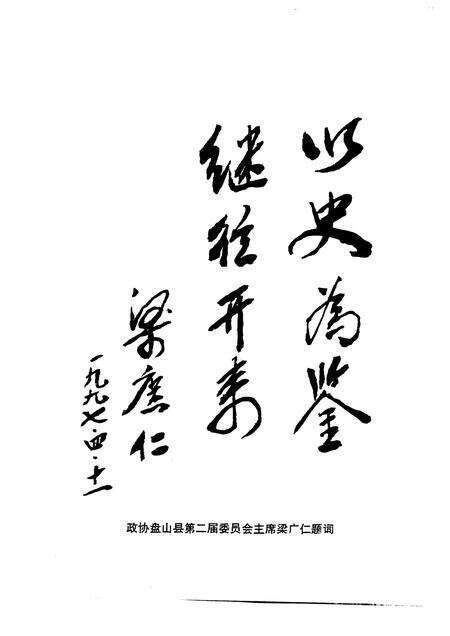 以史为鉴
继往开来
梁广仁
一九九七·四·十一
政协盘山县第二届委员会主席梁广仁题词